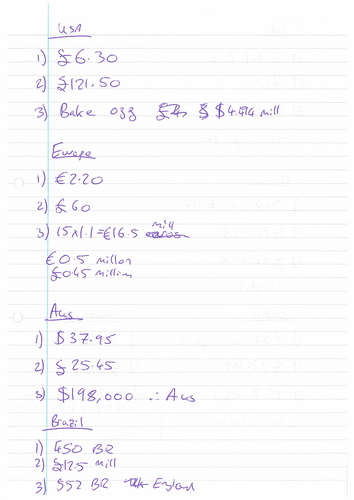 USA
1) £6.30
2) £121.50
3) Bake off $4.494 mill
Europe
1) €2.20
2) £60
3) 15x1.1=€16.5 mill
€0.5 millon
£0.45 million
Aus
1) $37.95
2) £25.45
3) $198,000 ∴ Aus
Brazil
1) 450 BR
2) £12.5 mill
3) $52 BR England